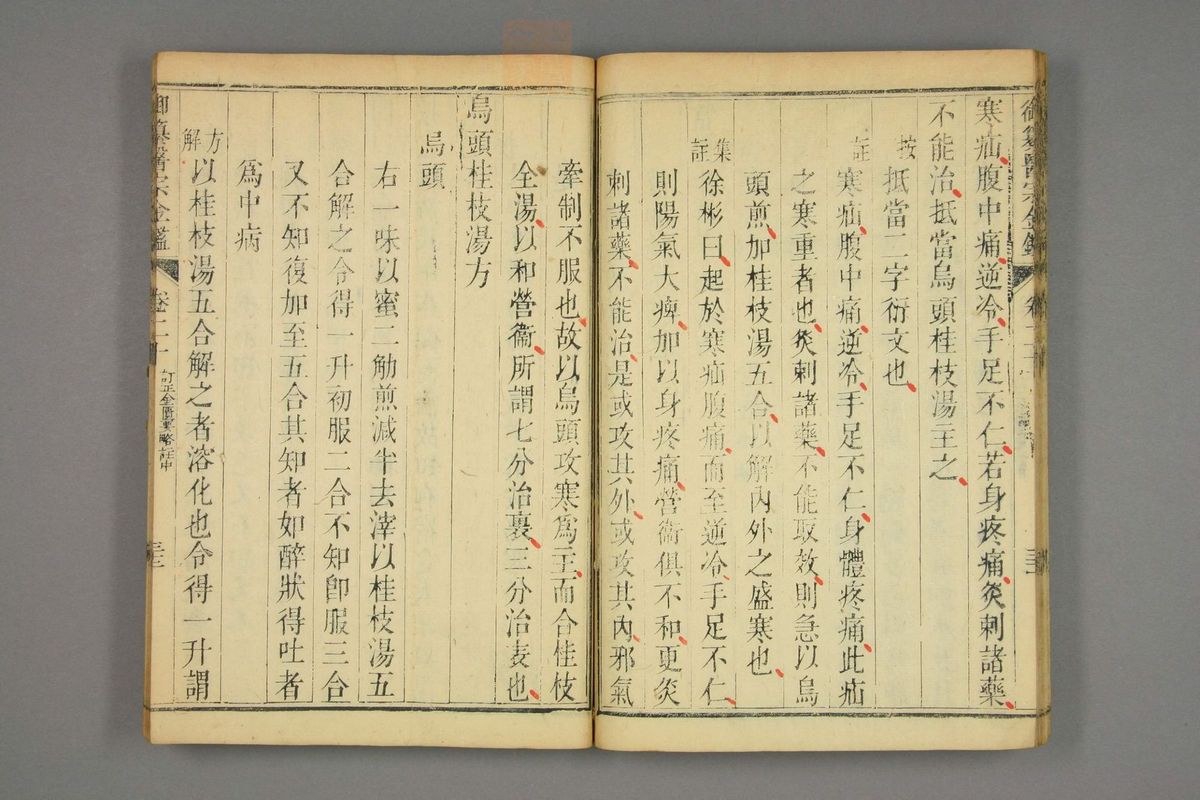 寒疝腹中痛逆冷手足不仁若身疼痛灸刺諸藥
不能治抵當烏頭桂枝湯主之
按
抵當二字衍文也
註
寒疝腹中痛逆冷手足不仁身體疼痛此疝
之寒重者也灸刺諸藥不能取效則急以烏
頭煎加桂枝湯五合以解內外之盛寒也
集註
徐彬曰起於寒疝腹痛而至逆冷手足不仁
則陽氣大痺加以身疼痛營衞俱不和更灸
刺諸藥不能治是或攻其外或攻其內邪氣
牽制不服也故以烏頭攻寒爲主而合桂枝
全湯以和營衞所謂七分治裏三分治表也
烏頭桂枝湯方
烏頭
右一味以蜜二觔煎減半去滓以桂枝湯五
合解之令得一升初服二合不知卽服三合
又不知復加至五合其知者如醉狀得吐者
爲中病
方解
以桂枝湯五合解之者溶化也令得一升謂
御纂醫宗金鑑
卷二十
訂正金匱要略註中
三三